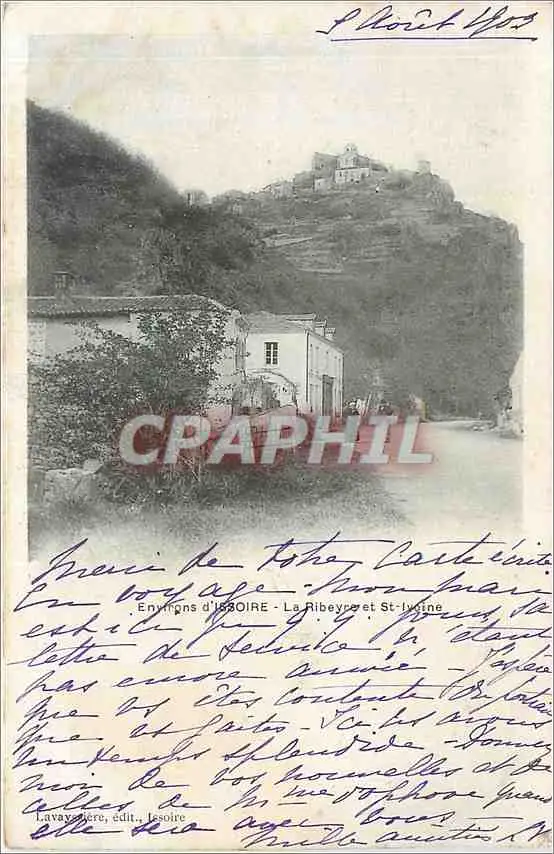 8 Août 1903
CPAPHIL
Merci de votre Carte écrite
en voyage - Mon mari
Environs d'ISSOIRE - La Ribeyre et St-Yvoine
est ici pour sa
lettre de service n'étant
pas encore arrivée - J'espère
que vs êtes contente du
que vs faites - Ici ns avons
un temps splendide - Donnez
moi de vos nouvelles et de
celles de Mme quand
Lavayssière, édit., Issoire
elle sera avec vous
Mille amitiés